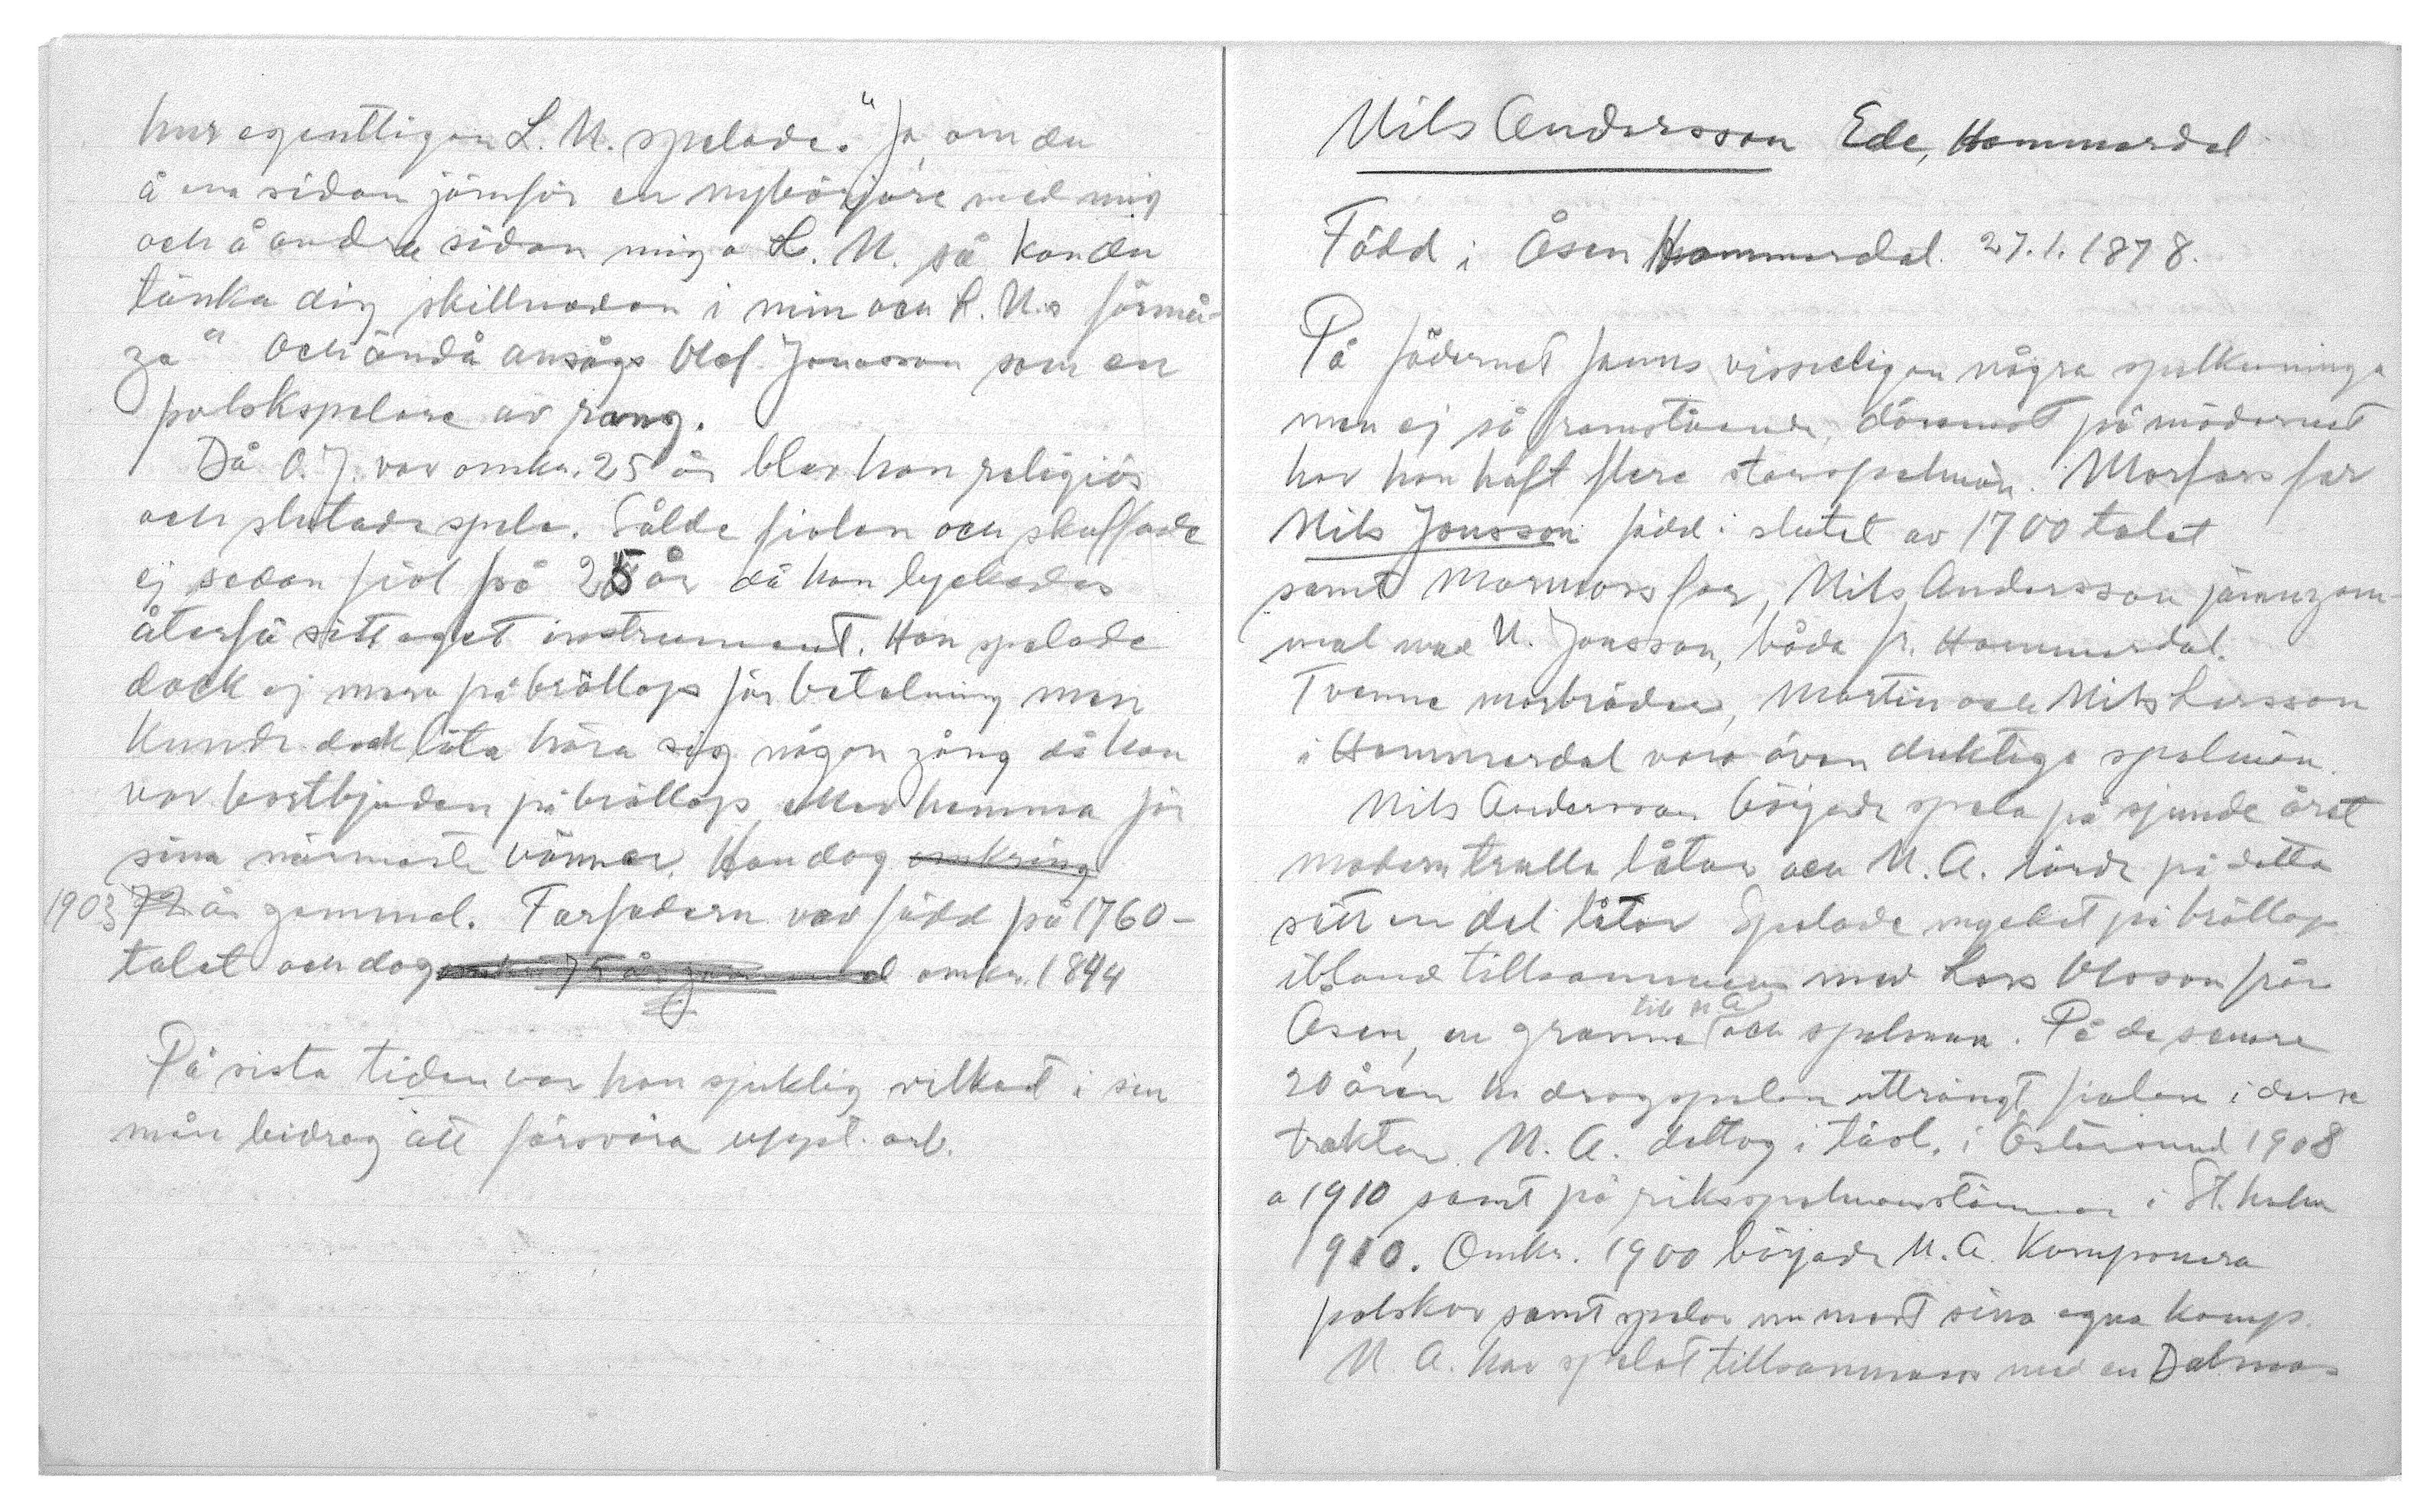 hur egentligen L. N. spelade. "Ja, om du
å ena sidan jämför en nybörjare med mig
och å andra sidan mig o L. N. så kan du
tänka dig skillnaden i min och L. N:s förmå-
ga" Och ändå ansågs Olof Jonasson som en
polskspelare av rang.
Då O. J. var omkr. 25 år blev han religiös
och slutade spela. Sålde fiolen och skaffade
ej sedan fiol på 25 år då han lyckades
återfå sitt eget instrument. Han spelade
dock ej mera på bröllops för betalning men
kunde dock låta höra sig någon gång då han
var bortbjuden på bröllops eller hemma för
sina närmaste vänner. Han dog omkring
1903 72 år gammal. Farfadern var född på 1760-
talet och dog omkr. 75 år gammal omkr. 1844
På sista tiden var han sjuklig vilket i sin
mån bidrog att försvåra uppt. arb.
Nils Andersson Ede, Hammerdal
Född i Åsen Hammerdal. 27.1.1878.
På fädernet fanns visserligen några spelkunniga
men ej så framstående, däremot på mödernet
har han haft flera storspelmän. Morfars far
Nils Jonsson född i slutet av 1700 talet
samt mormors far, Nils Andersson jämngam-
mal med N. Jonsson, båda fr. Hammerdal.
Tvenne morbröder, Martin och Nils Larsson
i Hammerdal voro även duktiga spelmän.
Nils Andersson började spela på sjunde året
modern trulla låtar och N. A. lärde på detta
sätt en del låtar Spelade mycket på bröllop
ibland tillsammans med Lars Olsson från
Åsen, en granne till N A och spelman. På de senare
20 åren har dragspelen utträngt fiolen i dessa
trakter. N. A. deltog i tävl. i Östersund 1908
o 1910 samt på riksspelmanstämman i St. holm
1910. Omkr. 1900 började N. A. komponera
polskor samt spelar nu mest sina egna komp.
N. A. har spelat tillsammans med en Dalmas